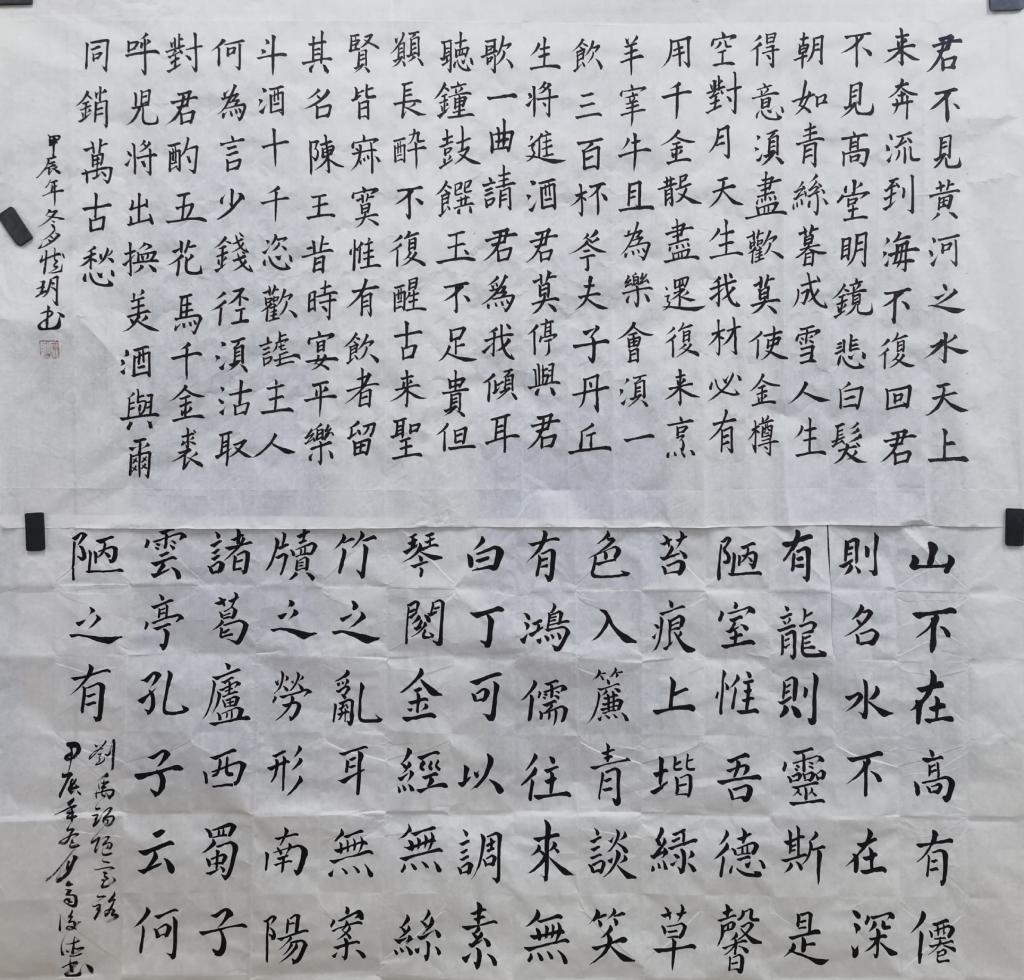 君不見黄河之水天上
来奔流到海不復回君
不見高堂明鏡悲白髮
朝如青絲暮成雪人生
得意湏盡歡莫使金樽
空對月天生我材必有
用千金散盡還復来烹
羊宰牛且為樂會湏一
飲三百杯岑夫子丹丘
生将進酒君莫停與君
歌一曲請君爲我傾耳
聽鐘鼓饌玉不足貴但
願長醉不復醒古来聖
賢皆寂寞惟有飲者留
其名陳王昔時宴平樂
斗酒十千恣歡謔主人
何為言少錢径湏沽取
對君酌五花馬千金裘
呼児将出換美酒與爾
同銷萬古愁
甲辰年冬月玥書
山不在高有僊
則名水不在深
有龍則靈斯是
陋室惟吾德馨
苔痕上堦緑草
色入簾青談笑
有鴻儒往來無
白丁可以調素
琴閲金經無絲
竹之亂耳無案
牘之勞形南陽
諸葛廬西蜀子
雲亭孔子云何
陋之有
劉禹錫陋室銘
甲辰年冬月高書